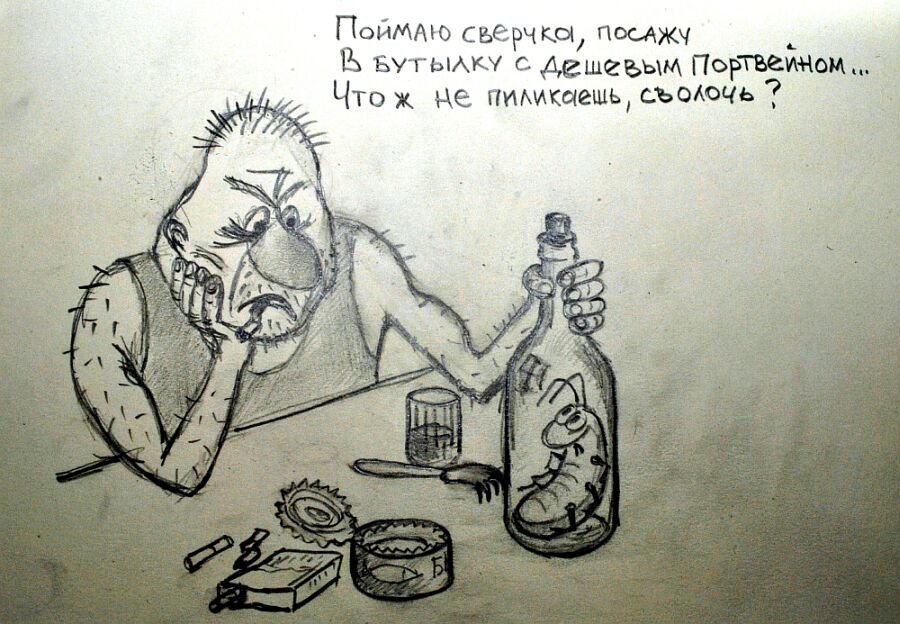 Поймаю сверчка, посажу
В бутылку с дешевым портвейном...
Что ж не пиликаешь, сволочь?
Б